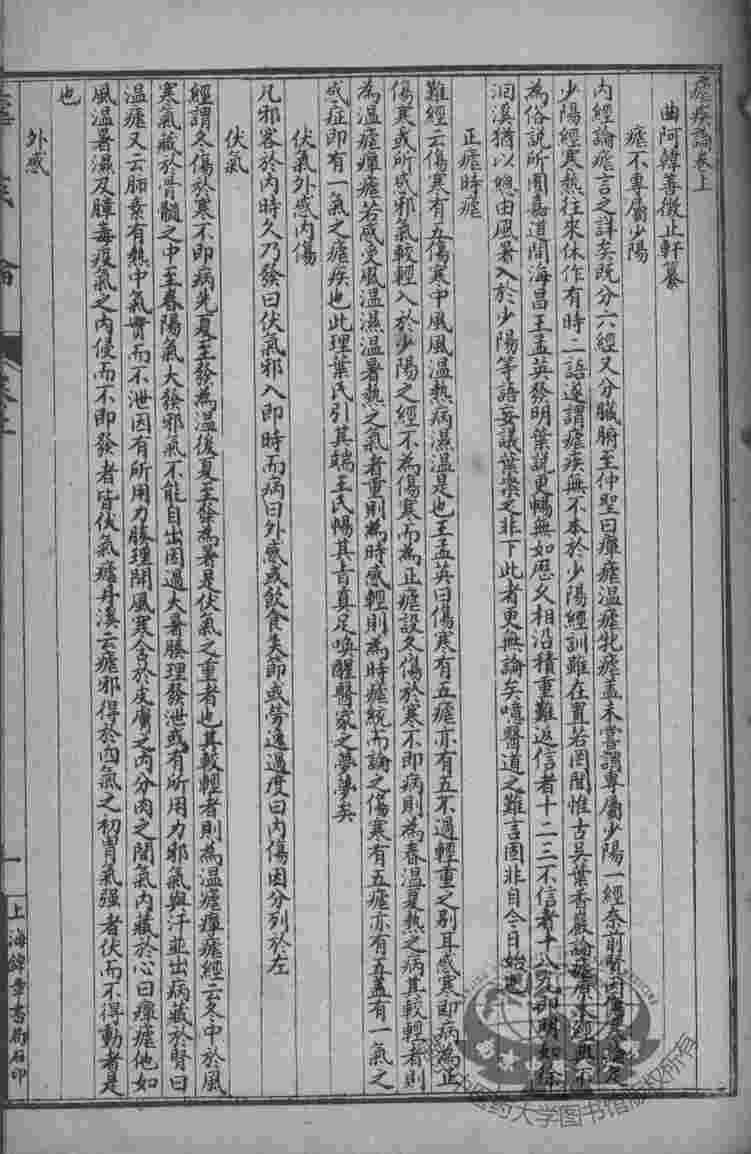 瘧疾論卷上
曲阿韓善徵止軒纂
瘧不專屬少陽
內經論瘧言之詳矣既分六經又分臟腑至仲聖曰癉瘧溫瘧牝瘧盖未嘗謂專屬少陽一經奈前賢因傷寒論足
少陽經寒熱往來休作有時二語遂謂瘧疾無不本於少陽經訓雖在置若罔聞惟古吳葉香嚴論瘧本經典不
為俗說所囿嘉道間海昌王孟英發明葉說更暢無如歷久相沿積重難返信者十二三不信者十八九即明如徐
洄溪猶以總由風暑入於少陽等語妄議葉案之非下此者更無論矣噫醫道之難言固非自今日始
正瘧時瘧
難經云傷寒有五傷寒中風風溫熱病濕溫是也王孟英曰傷寒有五瘧亦有五不過輕重之別耳感寒即病為正
傷寒或所感邪氣較輕入於少陽之經不為傷寒而為正瘧設冬傷於寒不即病則為春溫夏熱之病其較輕者則
為溫瘧癉瘧若感受風溫濕溫暑熱之氣者重則為時感輕則為時瘧統而論之傷寒有五瘧亦有五盖有一氣之
感症即有一氣之瘧疾也此理葉氏引其端王氏暢其旨真足喚醒醫家之夢夢矣
伏氣外感內傷
凡邪客於內時久乃發曰伏氣邪入即時而病曰外感或飲食失節或勞逸過度曰內傷因分列於左
伏氣
經謂冬傷於寒不即病先夏至發為溫後夏至發為暑是伏氣之重者也其較輕者則為溫瘧癉瘧經云冬中於風
寒氣藏於骨髓之中至春陽氣大發邪氣不能自出因遇大暑腠理發泄或有所用力邪氣與汗並出病藏於腎曰
溫瘧又云肺素有熱中氣實而不泄因有所用力腠理開風寒舍於皮膚之內分肉之間氣內藏於心曰癉瘧他如
風溫暑濕及瘴毒疫氣之內侵而不即發者皆伏氣瘧丹溪云瘧邪得於四氣之初胃氣强者伏而不得動者是
也
外感
瘧疾論
卷上
一
上海錦章書局石印